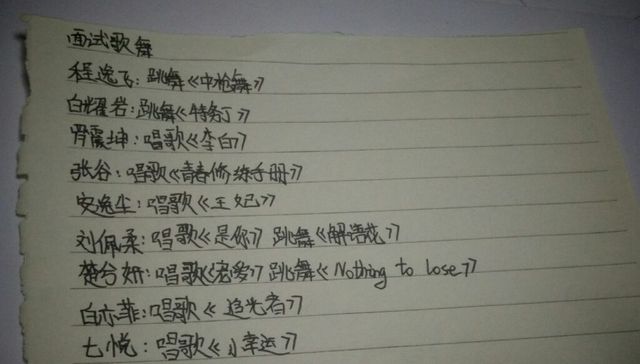 面试歌舞
程逸飞:跳舞《中枪舞》
白耀岩:跳舞《特务J》
肖震坤:唱歌《李白》
张谷:唱歌《青春修炼手册》
安逸尘:唱歌《王妃》
刘佩柔:唱歌《是你》 跳舞《解语花》
楚兮妍:唱歌《宠爱》 跳舞《Nothing to Lose》
白亦菲:唱歌《追光者》
七悦:唱歌《小幸运》